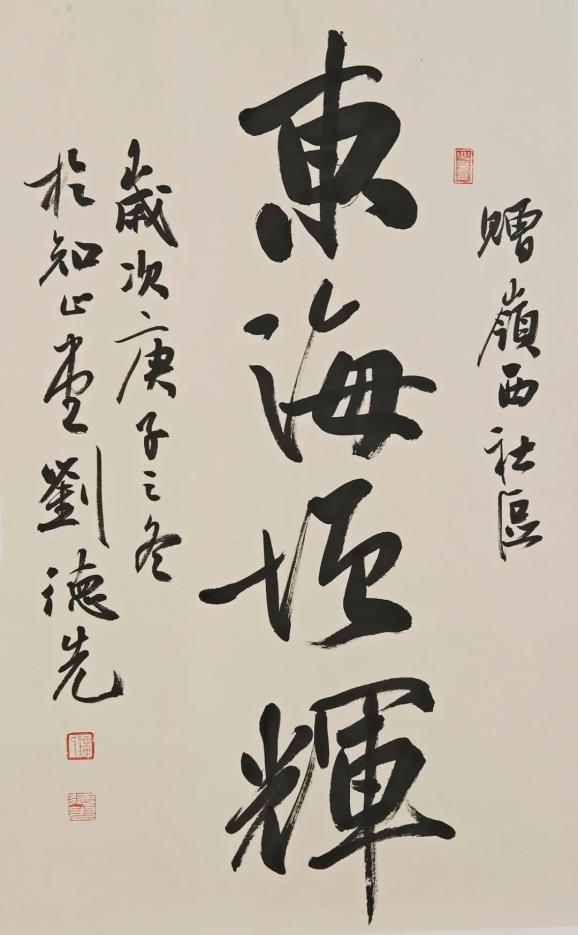 贈嶺西社區
東海恒輝
歲次庚子之冬
於知止堂劉德先